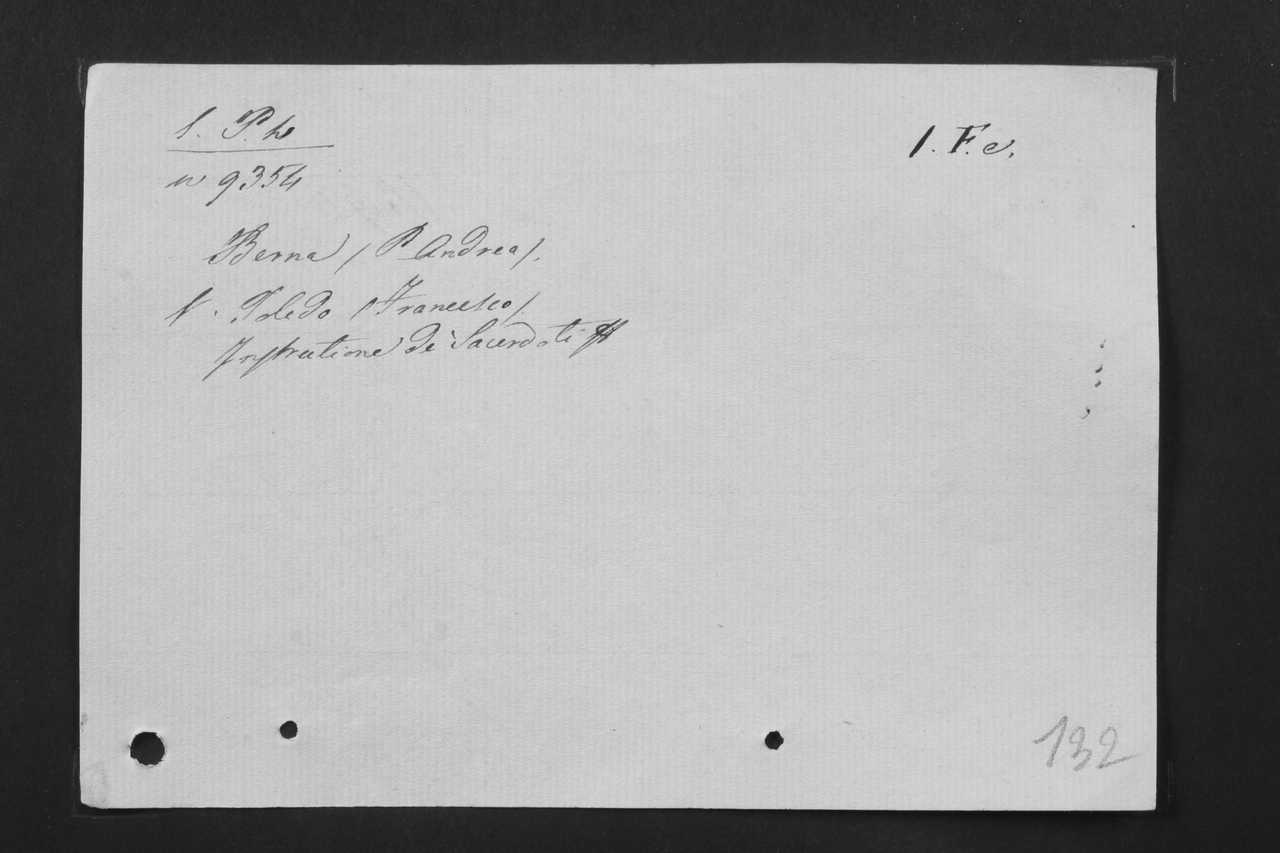 1. P. h
n 9354
1. F. c.
Berna / P. Andrea /.
V. Toledo / Francesco /.
Instrutione de Sacerdoti
132